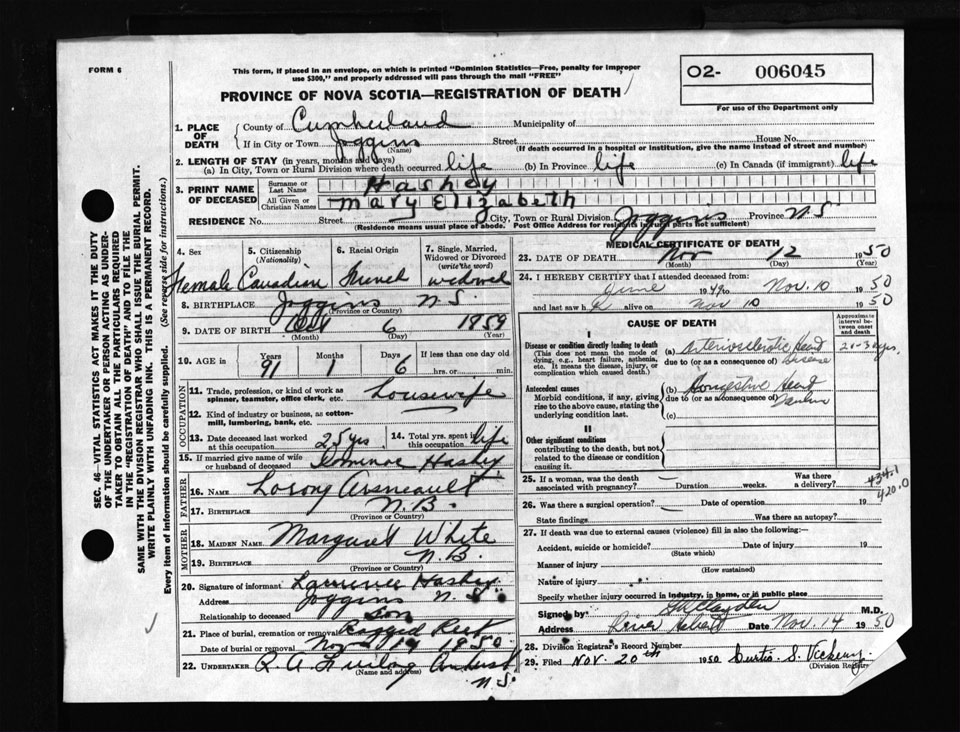 FORM 6
This form, if placed in an envelope, on which is printed "Dominion Statistics—Free, penalty for improper
use $300," and properly addressed will pass through the mail "FREE"
PROVINCE OF NOVA SCOTIA—REGISTRATION OF DEATH
02- 006045
For use of the Department only
SEC. 46—VITAL STATISTICS ACT MAKES IT THE DUTY
OF THE UNDERTAKER OR PERSON ACTING AS UNDER-
TAKER TO OBTAIN ALL THE PARTICULARS REQUIRED
IN THE "REGISTRATION OF DEATH" AND TO FILE THE
SAME WITH THE DIVISION REGISTRAR WHO SHALL ISSUE THE BURIAL PERMIT.
WRITE PLAINLY WITH UNFADING INK. THIS IS A PERMANENT RECORD.
Every item of information should be carefully supplied. (See reverse side for instructions.)
1. PLACE OF DEATH
County of Cumberland Municipality of
If in City or Town Joggins Street House No.
(Name) (If death occurred in a hospital or institution, give the name instead of street and number)
2. LENGTH OF STAY (in years, months and days)
(a) In City, Town or Rural Division where death occurred life (b) In Province life (c) In Canada (if immigrant) life
3. PRINT NAME OF DECEASED
Surname or Last Name Hashey
All Given or Christian Names Mary Elizabeth
RESIDENCE No. Street City, Town or Rural Division Joggins Province N.S.
(Residence means usual place of abode. Post Office Address for residents in rural parts not sufficient)
4. Sex
Female
5. Citizenship (Nationality)
Canadian
6. Racial Origin
French
7. Single, Married, Widowed or Divorced (write the word)
widowed
8. BIRTHPLACE Joggins N.S.
(Province or Country)
9. DATE OF BIRTH Oct 6 1859
(Month) (Day) (Year)
10. AGE in Years Months Days If less than one day old
91 1 6 hrs. or min.
OCCUPATION
11. Trade, profession, or kind of work as spinner, teamster, office clerk, etc. Housewife
12. Kind of industry or business, as cotton-mill, lumbering, bank, etc.
13. Date deceased last worked at this occupation 25 yrs
14. Total yrs. spent in this occupation life
15. If married give name of wife or husband of deceased Hashey
FATHER
16. NAME Arsneault
17. BIRTHPLACE N.B.
(Province or Country)
MOTHER
18. MAIDEN NAME Margaret White
19. BIRTHPLACE N.B.
(Province or Country)
20. Signature of informant Laurence Hashey
Address Joggins N.S.
Relationship to deceased Son
21. Place of burial, cremation or removal Ragged Reef
Date of burial or removal Nov 14 1950
22. UNDERTAKER R. A. Furlong Amherst
(Name and address) N.S.
MEDICAL CERTIFICATE OF DEATH
23. DATE OF DEATH Nov 12 1950
(Month) (Day) (Year)
24. I HEREBY CERTIFY that I attended deceased from:
June 1949 to Nov. 10 1950
and last saw h alive on Nov 10 1950
CAUSE OF DEATH
Approximate interval between onset and death
I
Disease or condition directly leading to death
(This does not mean the mode of dying, e.g., heart failure, asthenia, etc. It means the disease, injury, or complication which caused death.)
(a) Arteriosclerotic Heart
due to (or as a consequence of) Disease
Antecedent causes
Morbid conditions, if any, giving rise to the above cause, stating the underlying condition last.
(b) Congestive Heart
due to (or as a consequence of) Failure
(c)
II
Other significant conditions
contributing to the death, but not related to the disease or condition causing it.
25. If a woman, was the death associated with pregnancy? Duration weeks. Was there a delivery?
434.1
420.0
26. Was there a surgical operation? Date of operation 19
State findings Was there an autopsy?
27. If death was due to external causes (violence) fill in also the following:—
Accident, suicide or homicide? Date of injury 19
(State which)
Manner of injury
(How sustained)
Nature of injury
Specify whether injury occurred in industry, in home, or in public place
Signed by M.D.
Address River Hebert Date Nov. 14 1950
28. Division Registrar's Record Number
29. Filed NOV. 20th 1950 Curtis S. Vickery
(Division Registrar)